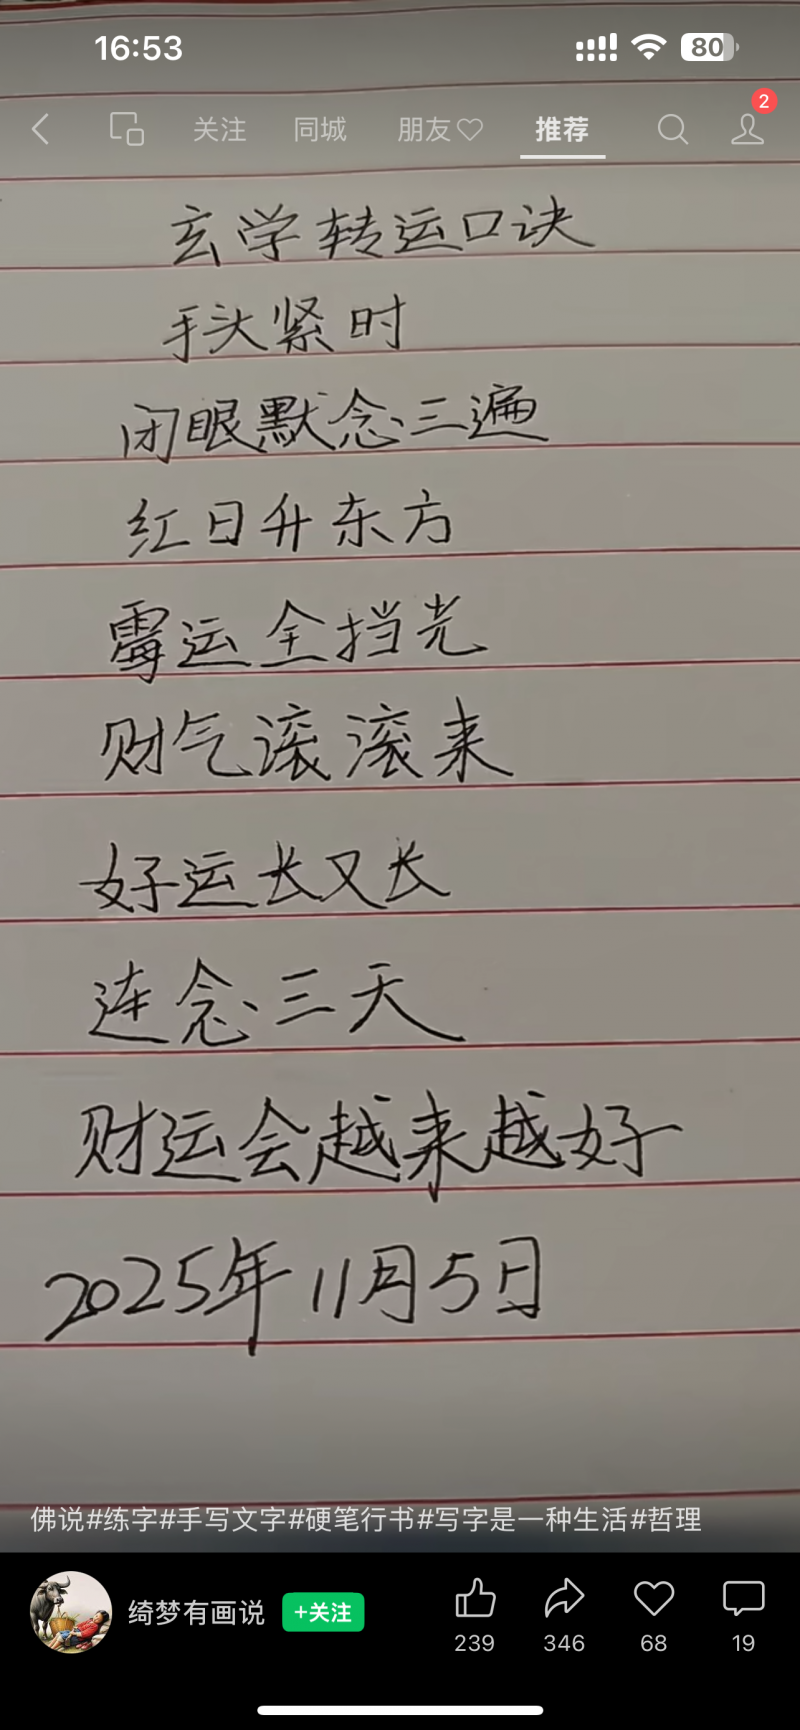 16:53
80
关注 同城 朋友♡ 推荐 2
玄学转运口诀
手头紧时
闭眼默念三遍
红日升东方
霉运全挡光
财气滚滚来
好运长又长
连念三天
财运会越来越好
2025年11月5日
佛说#练字#手写文字#硬笔行书#写字是一种生活#哲理
绮梦有画说 +关注
239 346 68 19